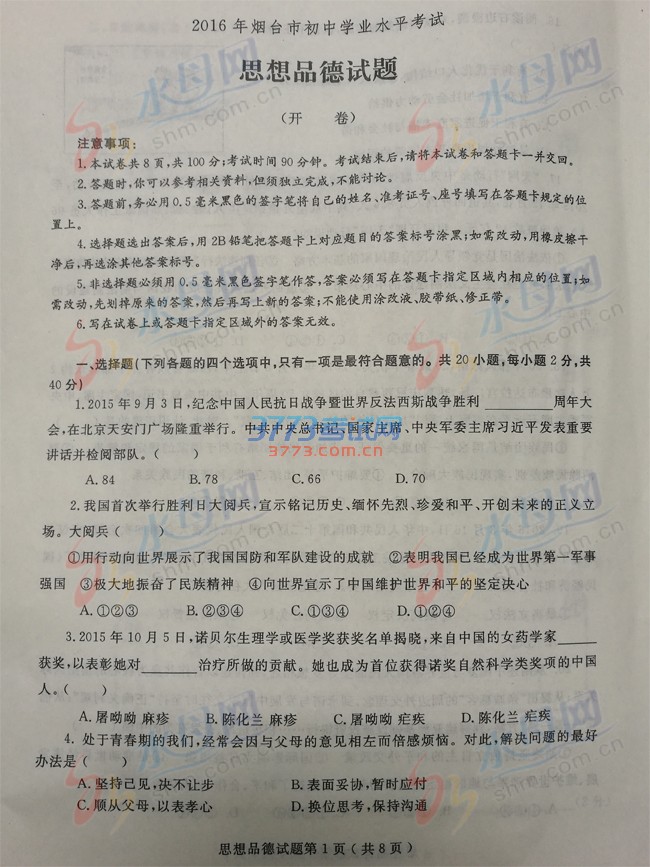 2016年烟台市初中学业水平考试
思想品德试题
(开 卷)
注意事项:
1.本试卷共8页,共100分;考试时间90分钟。考试结束后,请将本试卷和答题卡一并交回。
2.答题时,你可以参考相关资料,但须独立完成,不能讨论。
3.答题前,务必用0.5毫米黑色的签字笔将自己的姓名、准考证号、座号填写在答题卡规定的位
置上。
4.选择题选出答案后,用2B铅笔把答题卡上对应题目的答案标号涂黑;如需改动,用橡皮擦干
净后,再选涂其他答案标号。
5.非选择题必须用0.5毫米黑色签字笔作答,答案必须写在答题卡指定区域内相应的位置;如
需改动,先划掉原来的答案,然后再写上新的答案;不能使用涂改液、胶带纸、修正带。
6.写在试卷上或答题卡指定区域外的答案无效。
一、选择题(下列各题的四个选项中,只有一项是最符合题意的。共20小题,每小题2分,共
40分)
1.2015年9月3日,纪念中国人民抗日战争暨世界反法西斯战争胜利________周年大
会,在北京天安门广场隆重举行。中共中央总书记、国家主席、中央军委主席习近平发表重要
讲话并检阅部队。( )
A.84 B.78 C.66 D.70
2.我国首次举行胜利日大阅兵,宣示铭记历史、缅怀先烈、珍爱和平、开创未来的正义立
场。大阅兵( )
①用行动向世界展示了我国国防和军队建设的成就 ②表明我国已经成为世界第一军事
强国 ③极大地振奋了民族精神 ④向世界宣示了中国维护世界和平的坚定决心
A.①②③ B.②③④ C.①③④ D.①②④
3.2015年10月5日,诺贝尔生理学或医学奖获奖名单揭晓,来自中国的女药学家_____
获奖,以表彰她对_______治疗所做的贡献。她也成为首位获得诺奖自然科学类奖项的中国
人。( )
A.屠呦呦 麻疹 B.陈化兰 麻疹 C.屠呦呦 疟疾 D.陈化兰 疟疾
4.处于青春期的我们,经常会因与父母的意见相左而倍感烦恼。对此,解决问题的最好
办法是( )
A.坚持己见,决不让步 B.表面妥协,暂时应付
C.顺从父母,以表孝心 D.换位思考,保持沟通
思想品德试题第1页(共8页)
水母网
shm.com.cn
3773考试网
3773.com.cn